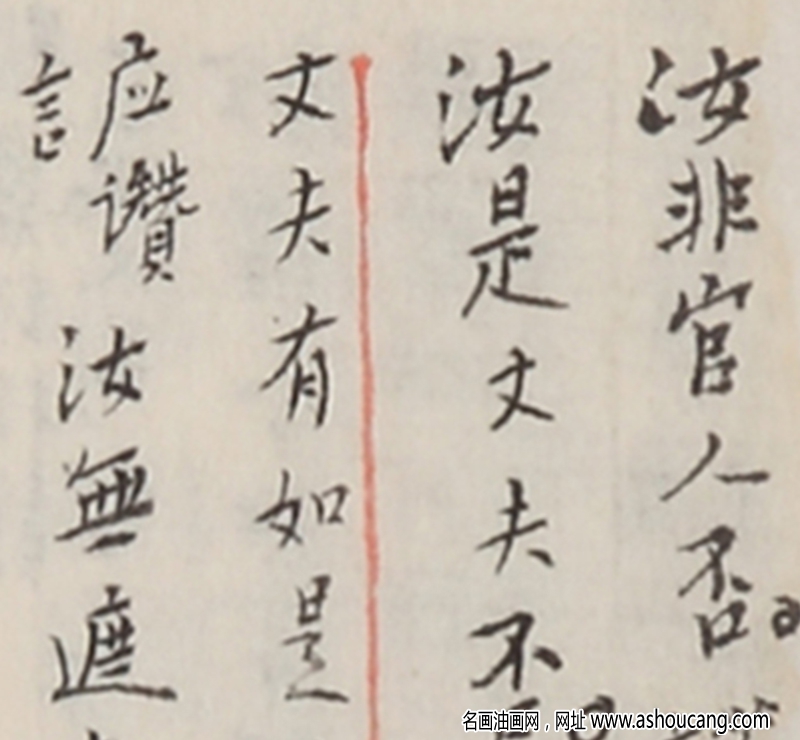 汝非官人否
汝是丈夫不
丈夫有如是
应讚汝無遮
言
名画油画网，网址 www.ashoucang.com